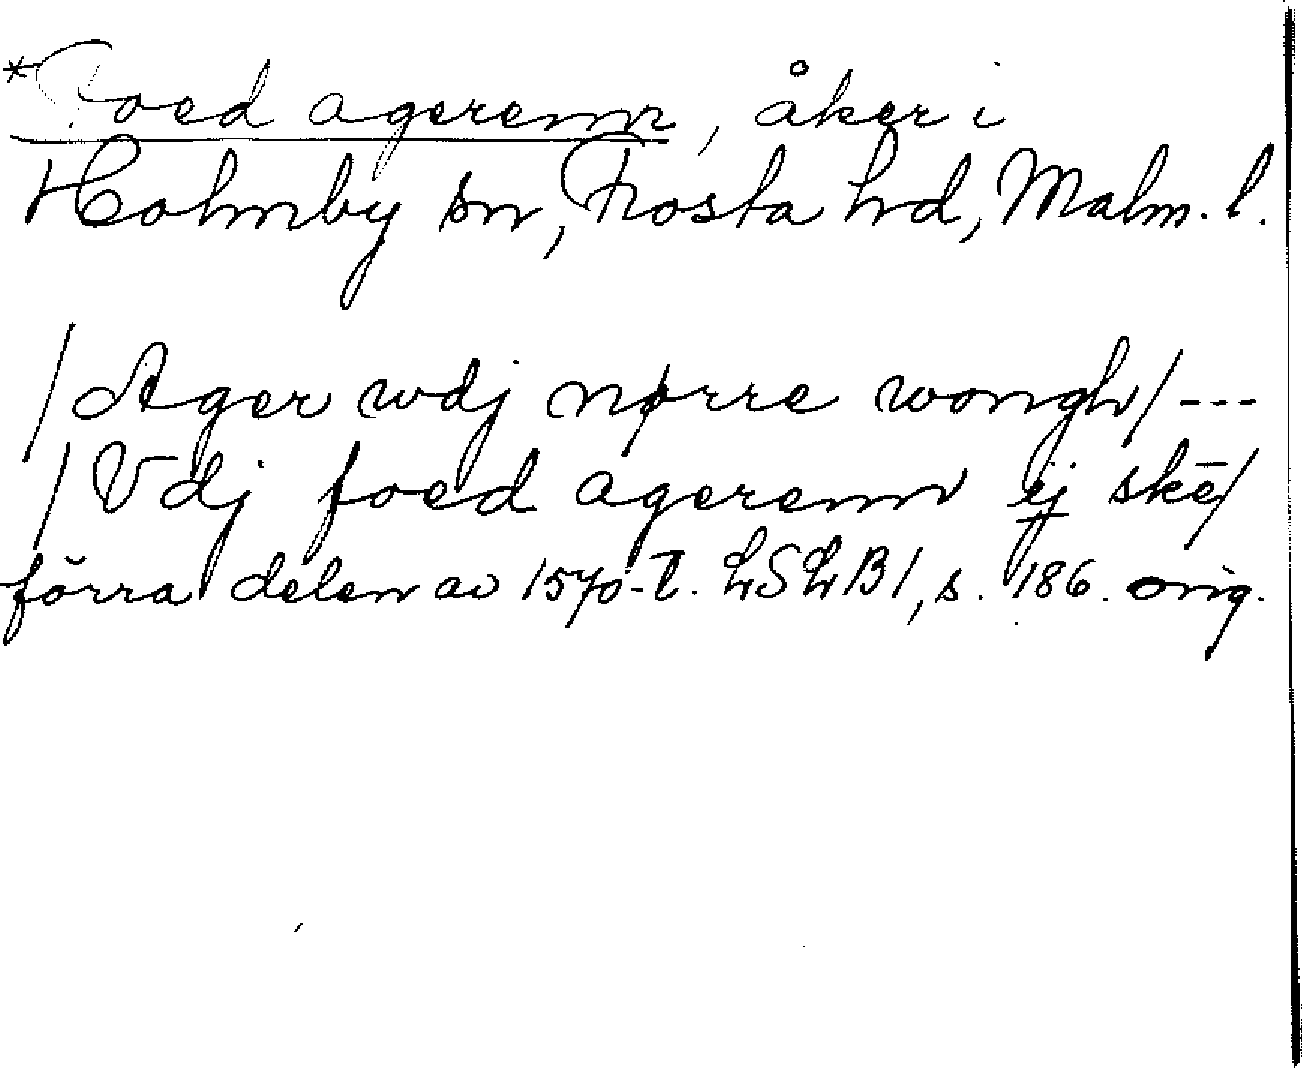 *Foed agerenn, åker i
Holmby sn, Frosta hd, Malm. l.
/Ager wdj nørre wongh/ ---
/Vdj foed agerenn ij skē/
förra delen av 1570-t. LSLB1, s. 186. orig.